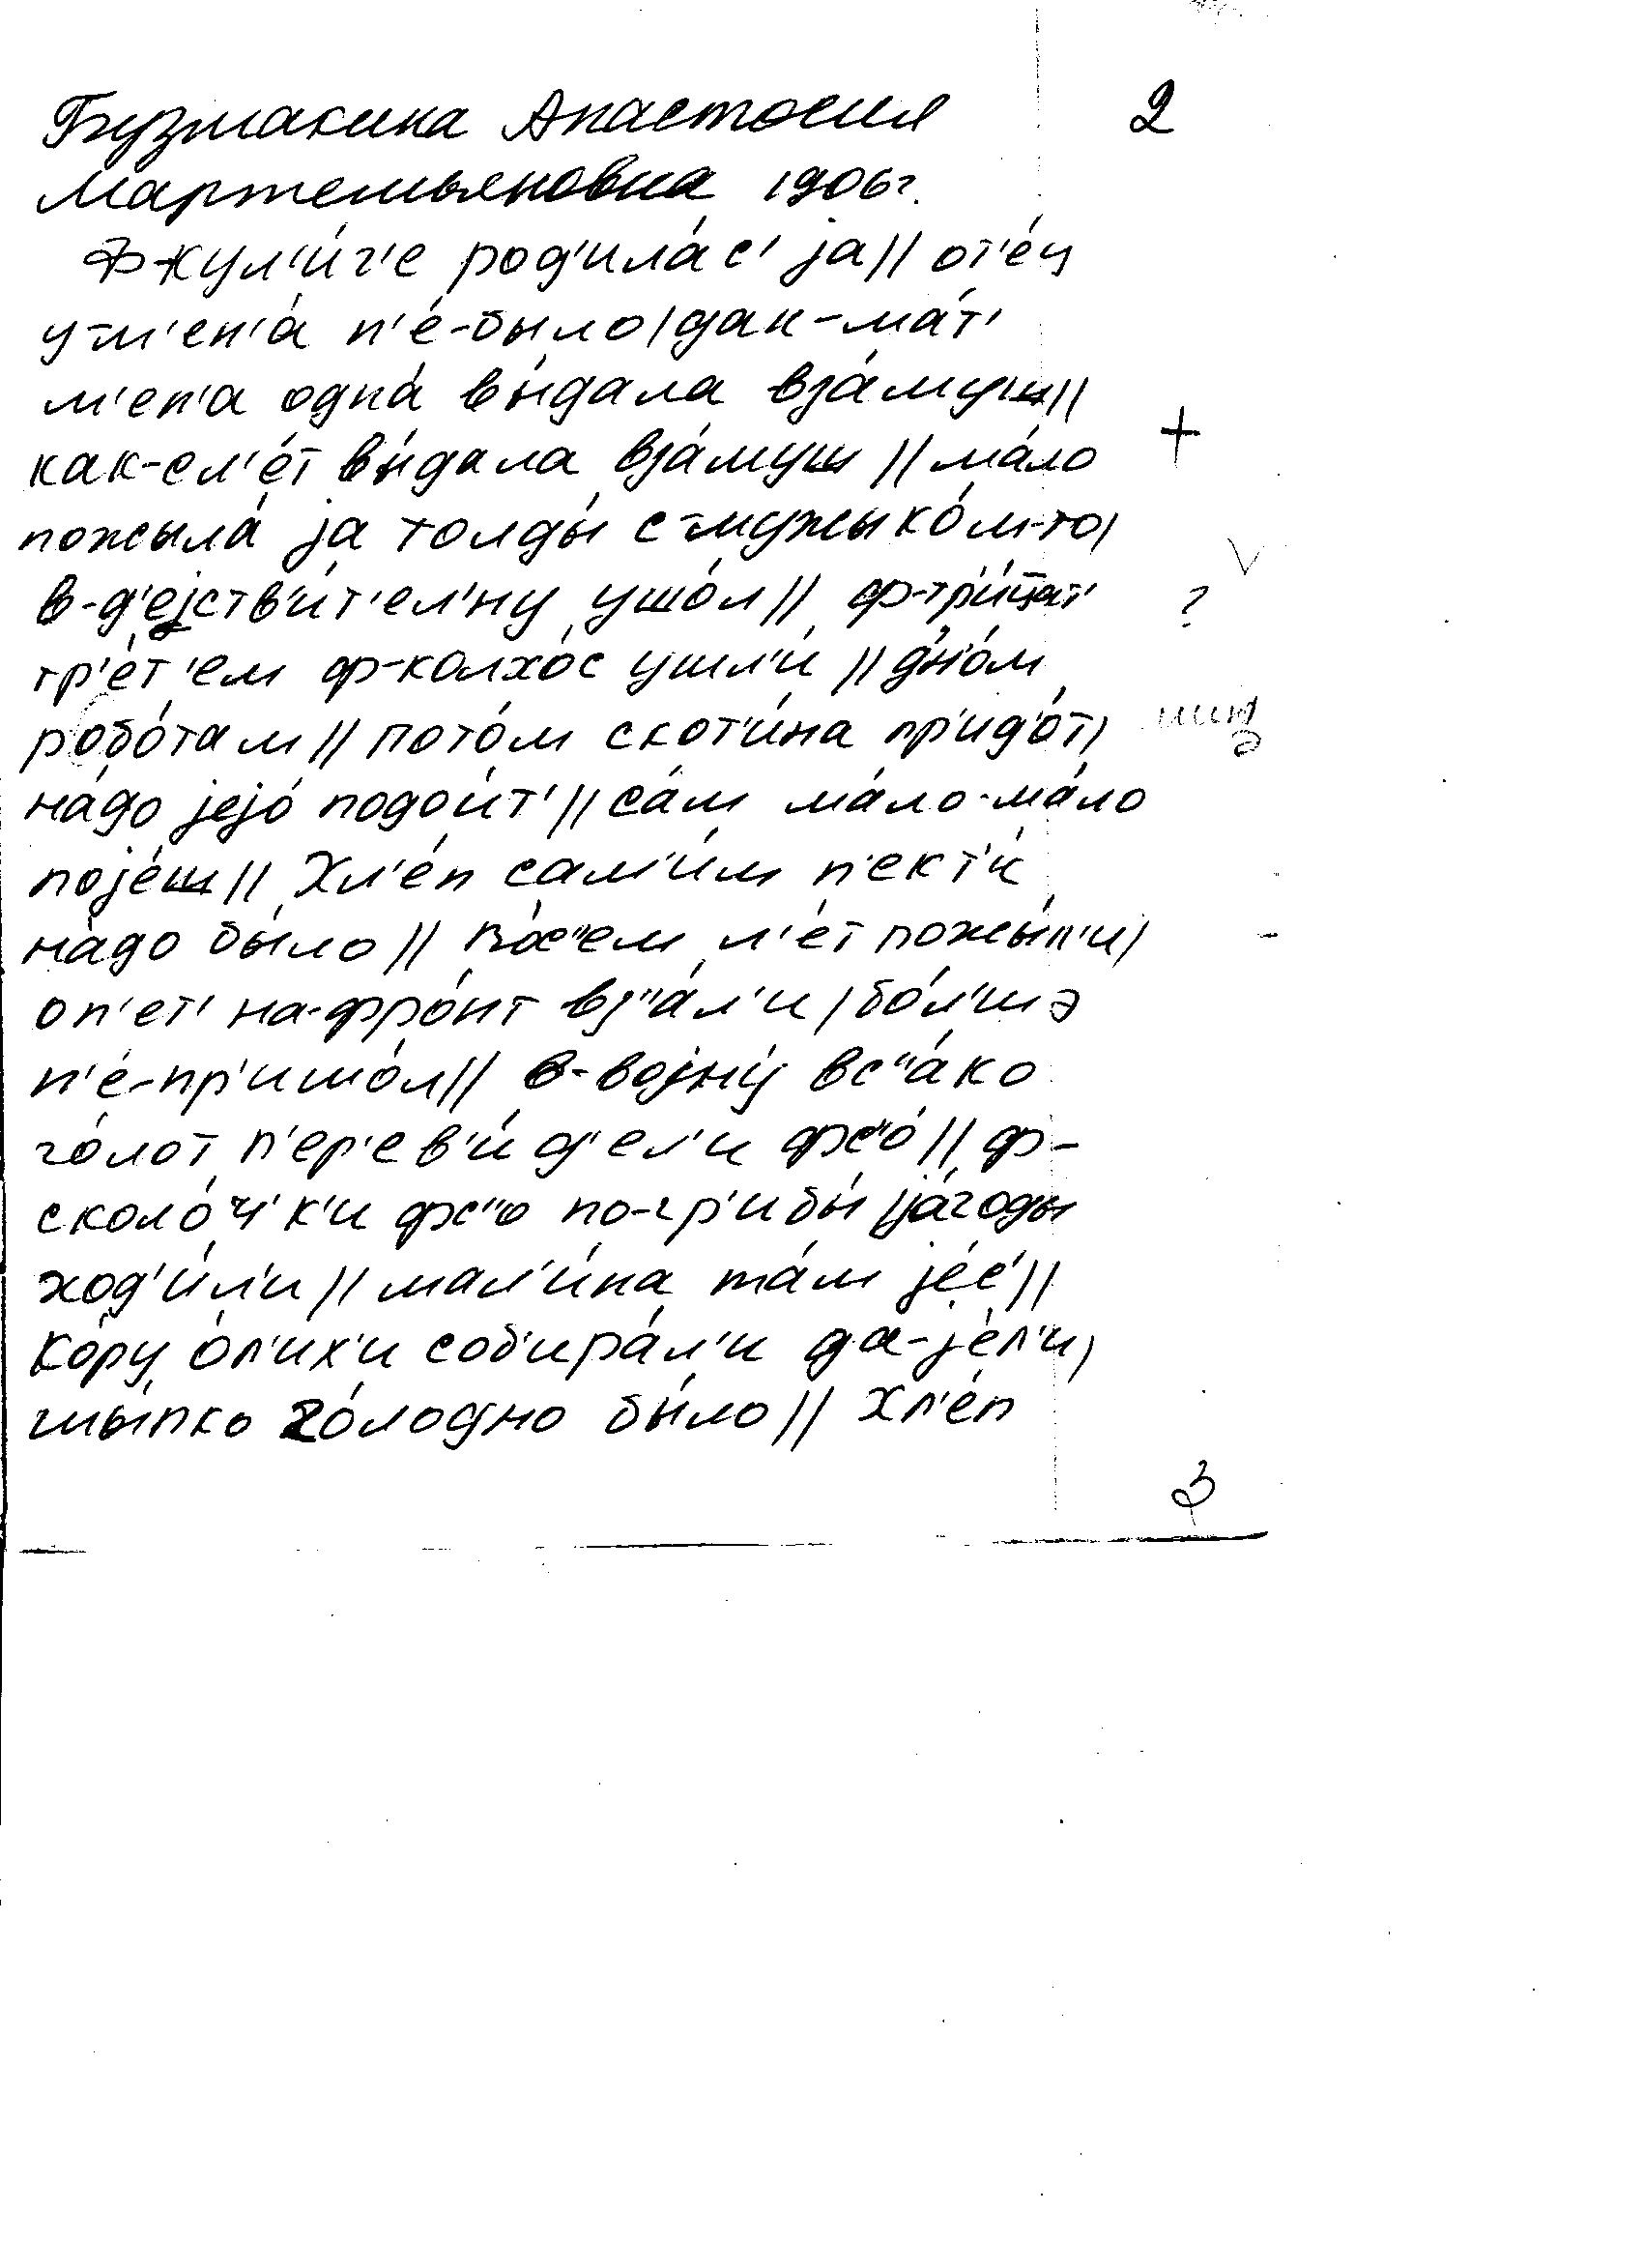 Бузмакина Анастасия 2
Мартемьяновна 1906г.
Ф-кул'и́г'е род'ила́с' jа // от'е́ц
у-м'ен'а́ н'е́-было / дак-ма́т'
м'ен'а одна́ вы́дала вза́муш //
как-с л'е́т вы́дала вза́муш // ма́ло +
пожыла́ jа толды́ с-мужыко́м-то /
в-д'еjств'и́т'ел'ну ушо́л // ф-тр'и́цат' ?
тр'е́т'ем ф-колхо́с ушл'и́ // д'н'о́м
робо́там // пото́м скот'и́на пр'ид'о́т /
на́до jеjо́ подои́т' // са́м ма́ло-ма́ло
поjе́ш // Хл'е́п сам'и́м п'ект'и́
на́до бы́ло // во́с"ем л'е́т пожы́л'и /
оп'ет' на-фро́нт вз"а́л'и / бо́л'шэ
н'е́-пр'ишо́л // в-воjну́ вс"а́ко
го́лот п'ер'ев'и́д'ел'и фс"о́ // ф-
сколо́ч'к'и фс"о по-гр'ибы́ jа́годы
ход'и́л'и // мал'и́на та́м jе́с' //
ко́ру о́л'их'и соб'ира́л'и да-jе́л'и /
шы́пко го́лодно бы́ло // Хл'е́п
3